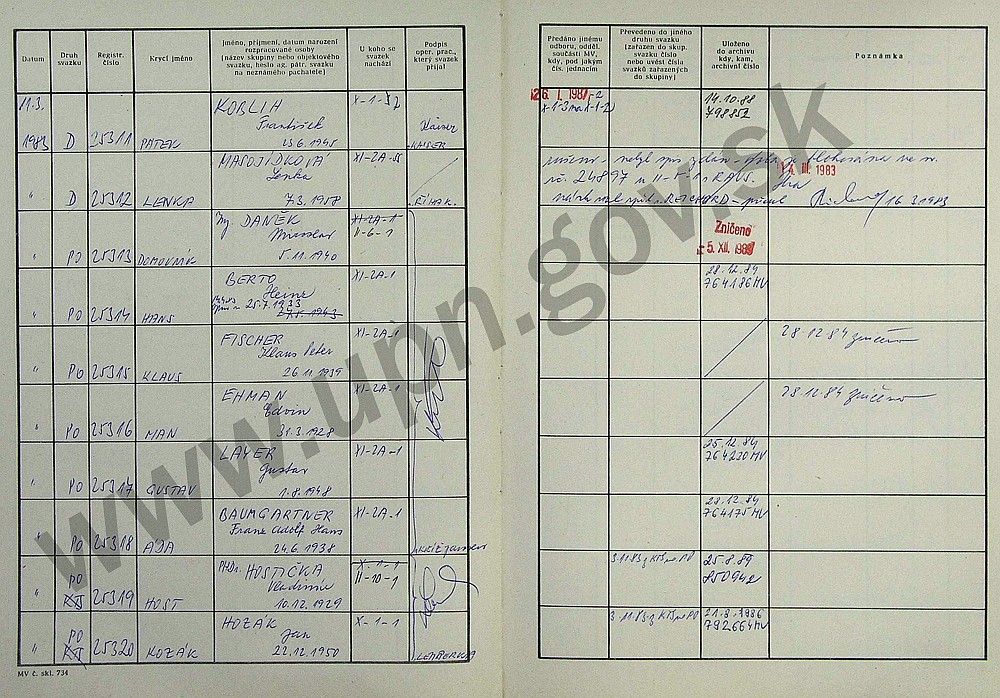 Datum
Druh svazku
Registr. číslo
Krycí jméno
Jméno, příjmení, datum narození
rozpracované osoby
(název skupiny nebo objektového
svazku, heslo ag. pátr. svazku
na neznámého pachatele)
U koho se
svazek
nachází
Podpis
oper. prac.,
který svazek
přijal
Předáno jinému
odboru, odděl.
součásti MV,
kdy, pod jakým
čís. jednacím
Převedeno do jiného
druhu svazku
(zařazen do skup.
svazku číslo
nebo uvést čísla
svazků zařazených
do skupiny)
Uloženo
do archivu
kdy, kam,
archivní číslo
Poznámka
11.3.
1983 D 25311 PÁTEK
KOBLIH
František
23.6.1945
X-1-
Kaiser
KAISER
26. I. 198
14.10.88
798852
" D 25312 LENKA
MASOJÍDKOVÁ
Lenka
7.3.1958
XI-2A-
ŘÍHÁK
24897
III 1983
16.3.1983
" PO 25313 DOMOVNÍK
Ing. DANĚK
Miroslav
5.11.1940
XI-2A-1
II-6-1
Zničeno
5. XII. 198
" PO 25314 HANS
BERTO
Heinz
25.7.1933
27.5.1943
XI-2A-1
28.12.84
764186 MV
" PO 25315 KLAUS
FISCHER
Klaus Peter
26.11.1939
XI-2A-1
28.12.84 zničeno
" PO 25316 MAN
EHMAN
Edvin
31.3.1928
XI-2A-1
28.12.84 zničeno
" PO 25317 GUSTAV
LAYER
Gustav
1.8.1948
XI-2A-1
764230 MV
" PO 25318 ÁJA
BAUMGARTNER
Franz Adolf Hans
24.6.1938
XI-2A-1
28.12.84
764175 MV
" PO 25319 HOST
PhDr. HOSTIČKA
Vladimír
10.12.1929
II-10-1
3.11.83 z KTS na PO
25.8.89
" PO 25320 KOZÁK
HOZÁK
Jan
22.12.1950
X-1-1
3.11.83 z KTS na PO
21.8.1986
792664 MV
MV č. skl. 734
www.upn.gov.sk